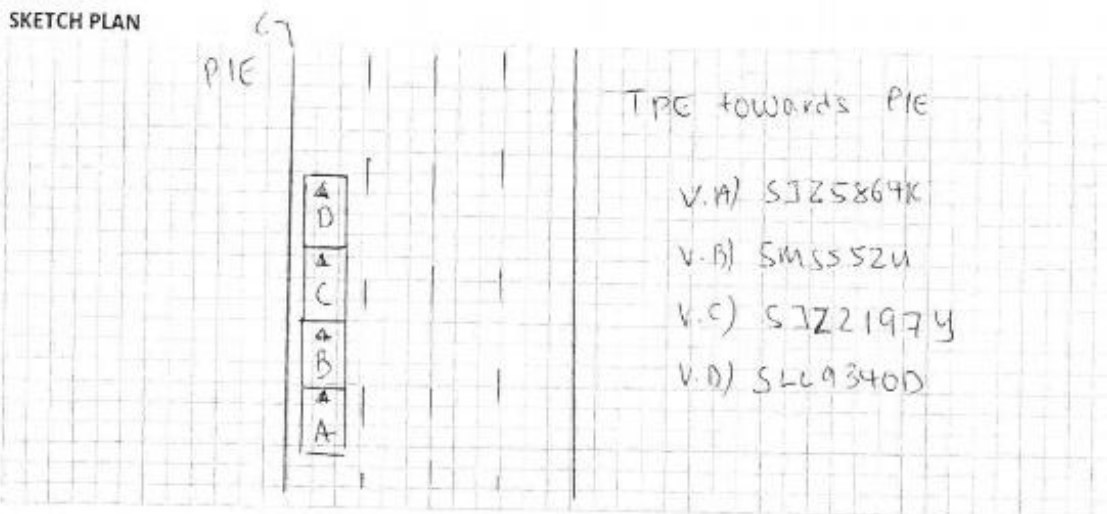 SKETCH PLAN
PIE
TPE towards PIE
D
V.A) SJZ5869K
C
V.B) SMS552U
B
V.C) SJZ2197Y
A
V.D) SLL9340D